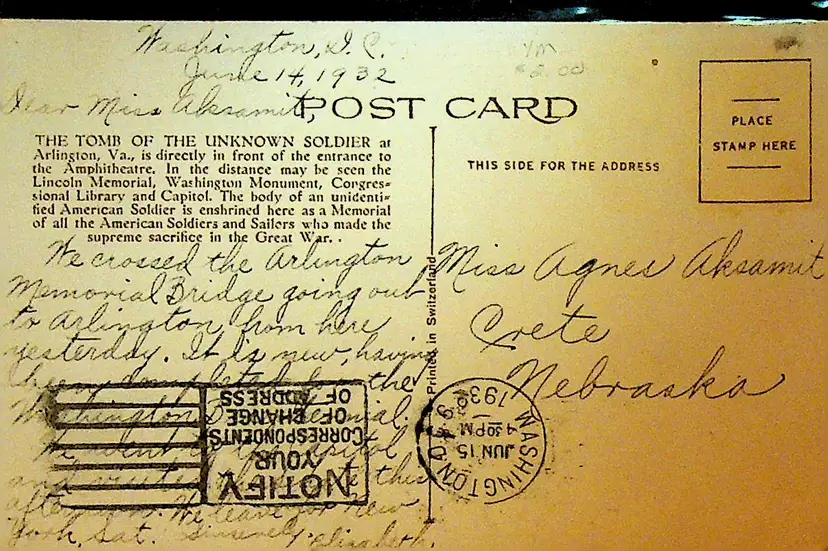 Washington, D.C.
June 14, 1932
Dear Miss Aksamit,
YM
$2.00
POST CARD
THE TOMB OF THE UNKNOWN SOLDIER at
Arlington, Va., is directly in front of the entrance to
the Amphitheatre. In the distance may be seen the
Lincoln Memorial, Washington Monument, Congres=
sional Library and Capitol. The body of an unidenti=
fied American Soldier is enshrined here as a Memorial
of all the American Soldiers and Sailors who made the
supreme sacrifice in the Great War. .
We crossed the Arlington
Memorial Bridge going out
to Arlington from here
yesterday. It is new, having
been completed for the
Washington Bicentennial.
We went to the Capitol
and visited the Senate this
afternoon. We leave for New
York, Sat. Sincerely, Elizabeth.
Printed in Switzerland
PLACE
STAMP HERE
THIS SIDE FOR THE ADDRESS
Miss Agnes Aksamit
Crete
Nebraska
WASHINGTON, D.C.
JUN 15
4 30 PM
193
NOTIFY
YOUR
CORRESPONDENTS
OF CHANGE
OF ADDRESS